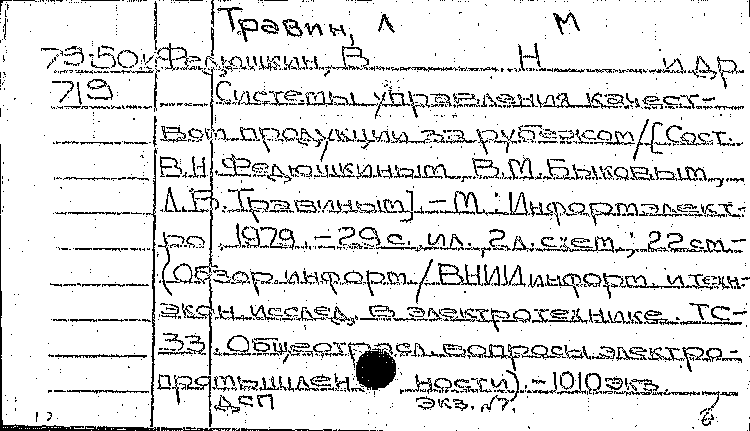 Травин, Л М
79:50к Федюшкин, В Н и др
719 Системы управления качест-
вом продукции за рубежом/[Сост.
В.Н. Федюшкиным, В.М. Быковым,
Л.В. Травиным]. – М.: Информэлект-
ро, 1979. – 29 с., ил., 2 л. схем.; 22 см. –
(Обзор. информ. / ВНИИ информ. и техн-
экон исслед. в электротехнике. ТС-
33. Общеотрасл. вопросы электро-
промышленности). – 1010 экз.
ДСП экз. №7.